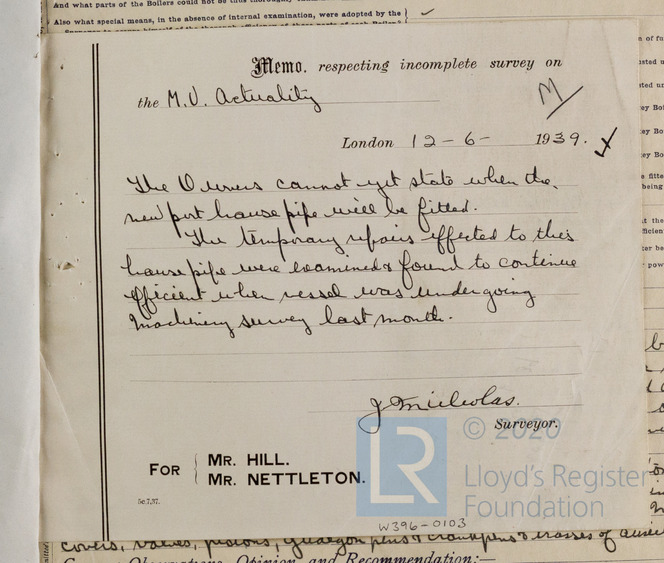 And what parts of the Boilers could not be thus thoroughly
Also what special means, in the absence of internal examination, were adopted by the
Memo. respecting incomplete survey on
the M.V. Actuality
M
London 12-6- 1939.
The Owners cannot yet state when the
new port hause pipe will be fitted.
The temporary repairs effected to this
hause pipe were examined & found to continue
efficient when vessel was undergoing
machinery survey last month.
J Nicholas.
Surveyor.
FOR MR. HILL.
MR. NETTLETON.
5c.7,37.
LR © 2020
Lloyd's Register
Foundation
W396-0103
covers, valves, pistons, gudgeon pins & crankpins &
General Observations, Opinion and Recommendation:—